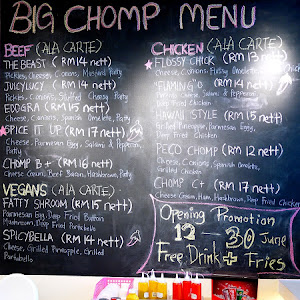 BIG CHOMP MENU
BEEF (ALA CARTE)
THE BEAST (RM 14 nett)
Pickles, Cheese, Onions, Mustard, Patty
JUICYLUCY (RM 14 nett)
Pickles, Onions, Stuffed Cheesy Patty
EDGRA (RM 15 nett)
Cheese, Onions, Spanish Omelette, Patty
SPICE IT UP (RM 17 nett)
Cheese, Parmesan Eggs, Salami & Pepperoni, Patty
CHOMP B+ (RM 16 nett)
Cheese, Cream, Beef Bacon, Hashbrown, Patty
VEGANS (ALA CARTE)
FATTY SHROOM (RM 15 nett)
Parmesan Egg, Deep Fried Button
Mushroom, Deep Fried Portobello
SPICYBELLA (RM 14 nett)
Cheese, Grilled Pineapple, Grilled
Portabella
CHICKEN (ALA CARTE)
FLOSSY CHICK (RM 13 nett)
Cheese, Onions,
"FLAMING"O (RM 14 nett)
Cheese, Salami & Pepperoni,
Deep Fried Chicken
HAWAII STYLE (RM 15 nett)
Grilled Pineapple, Parmesan Eggs,
Chicken
PECO CHOMP (RM 12 nett)
Cheese, Onions, Spanish Omelette,
Grilled Chicken
CHOMP C+ (RM 17 nett)
Cheese, Cream, Ham, Hashbrown, Deep Fried Chicken
Opening Promotion
12 - 30 June
Free Drink + Fries